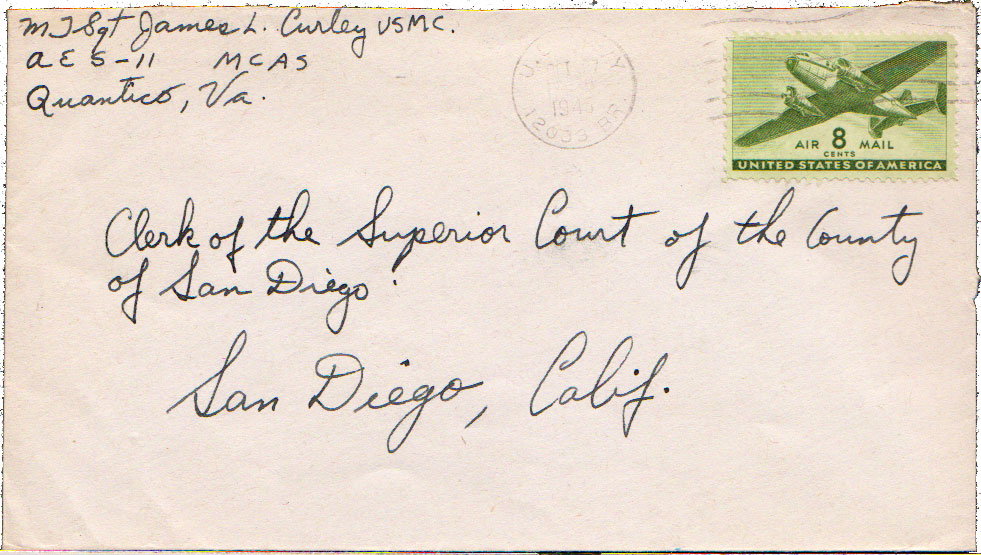 MTSgt James L. Curley USMC.
AES-11 MCAS
Quantico, Va.
U.
Y
12033 BR.
AIR 8 MAIL
CENTS
UNITED STATES OF AMERICA
Clerk of the Superior Court of the County
of San Diego.
San Diego, Calif.